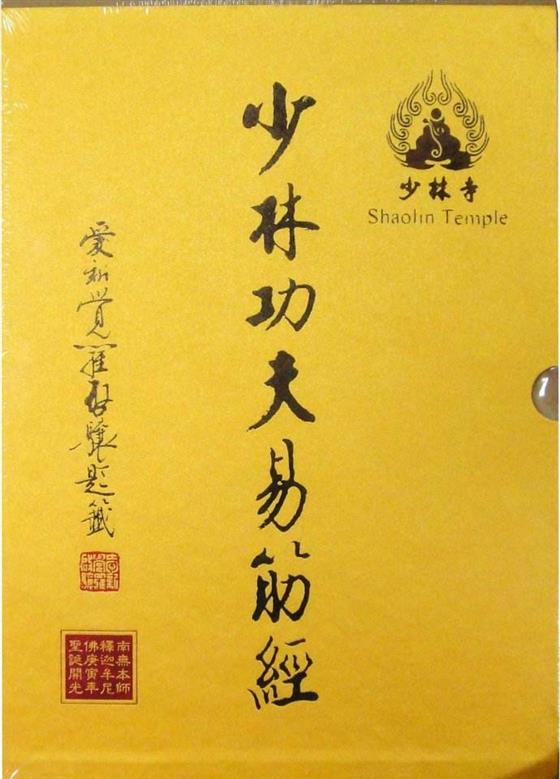 少林寺
Shaolin Temple
少林功夫易筋經
愛新覺羅啓驤題籤
南無本師
釋迦牟尼
佛庚寅年
聖誕開光